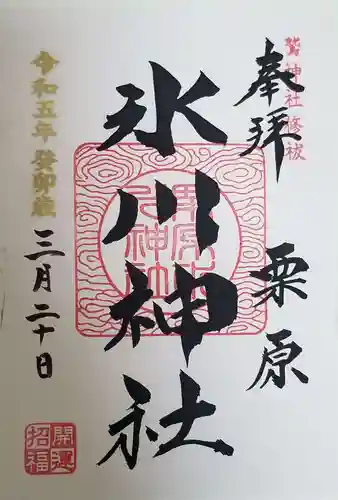 鷲神社修祓
奉拝
栗原
氷川神社
令和五年癸卯歳
三月二十日
開運
招福